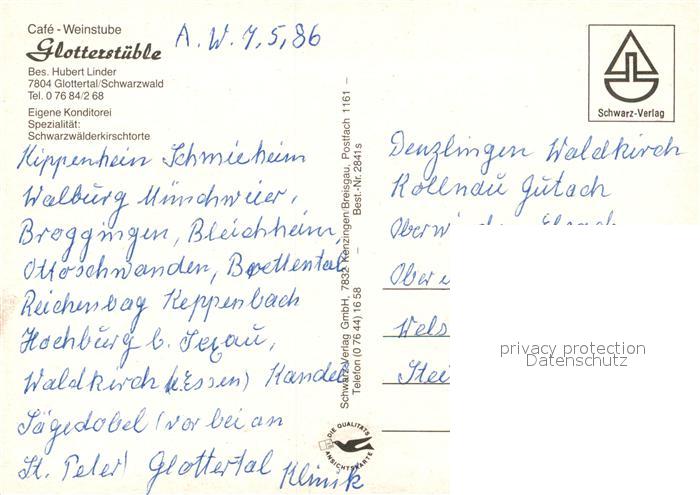 Café - Weinstube
Glotterstüble
Bes. Hubert Linder
7804 Glottertal/Schwarzwald
Tel. 0 76 84/2 68
Eigene Konditorei
Spezialität:
Schwarzwälderkirschtorte
A. W. 7.5.86
Kippenheim Schmieheim
Walburg Münchweier,
Broggingen, Bleichheim
Ottoschwanden, Brettental,
Reichenbag Keppenbach
Hochburg b. Sexau,
Waldkirch (Essen) Kandel
Sägedobel (vorbei an
St. Peter) Glottertal Klinik
Schwarz-Verlag GmbH, 7832 Kenzingen/Breisgau, Postfach 1161 –
Telefon (0 76 44) 16 58 – Best.-Nr. 2841s
DIE QUALITÄTS
ANSICHTSKARTE
Schwarz-Verlag
Denzlingen Waldkirch
Kollnau Gutach
Ober
Ober
privacy protection
Datenschutz